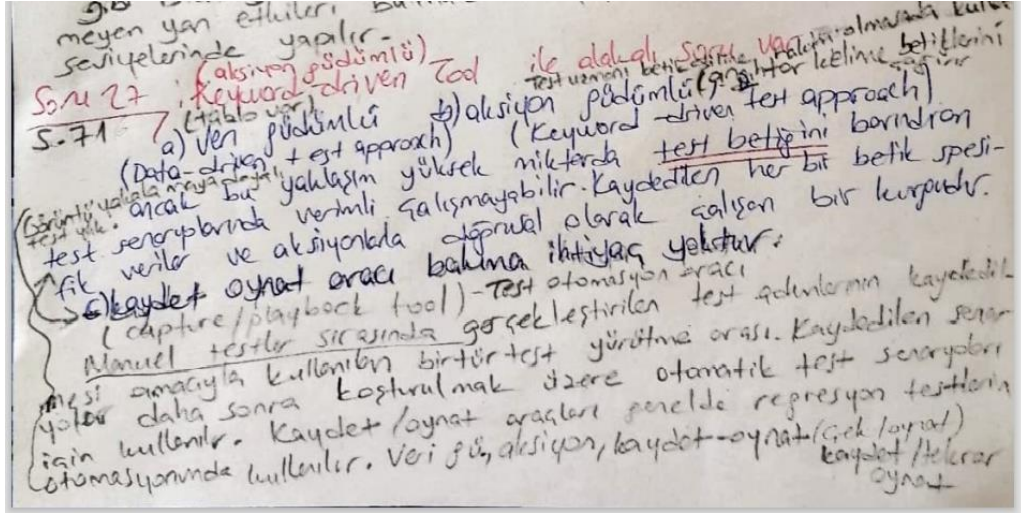 meyen yan etkileri
seviyelerinde yapılır.
(aksiyon güdümlü)
Soru 27 : Keyword-driven Tool ile alakalı soru var
S.71 (tablo var)
Test uzmanı betik dilinde olmasada
anahtar kelime betiklerini
a) Veri güdümlü b) aksiyon güdümlü
(Data-driven test approach) (Keyword-driven test approach)
Görüntü yakalamaya dayalı
test yük. ancak bu yaklaşım yüksek miktarda test betiğini barındıran
test senaryolarında verimli çalışmayabilir. Kaydedilen her bir betik spesi-
fik veriler ve aksiyonlarla doğrusal olarak çalışan bir kurgudur.
c) kaydet oynat aracı bakıma ihtiyaç yoktur.
(capture/playback tool) - Test otomasyon aracı
Manuel testler sırasında gerçekleştirilen test adımlarının kaydedil
mesi amacıyla kullanılan bir tür test yürütme aracı. Kaydedilen senar
yolar daha sonra koşturulmak üzere otomatik test senaryoları
için kullanılır. Kaydet/oynat araçları genelde regresyon testlerin
otomasyonunda kullanılır. Veri gü, aksiyon, kaydet-oynat (çek/oynat)
kaydet/tekrar
oynat